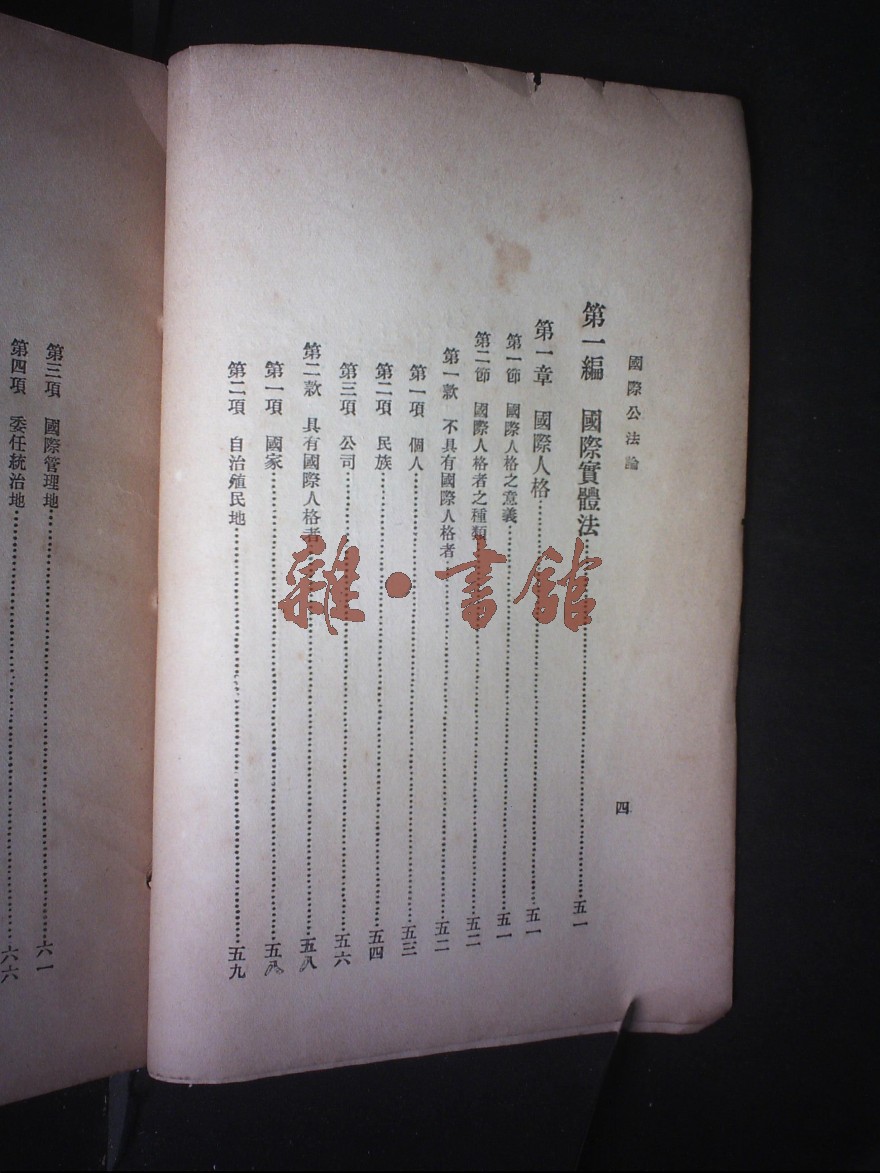 國際公法論
四
第一編 國際實體法……五一
第一章 國際人格……五一
第一節 國際人格之意義……五一
第二節 國際人格者之種類……五二
第一款 不具有國際人格者……五二
第一項 個人……五三
第二項 民族……五四
第三項 公司……五六
第二款 具有國際人格者……五八
第一項 國家……五八
第二項 自治殖民地……五九
第三項 國際管理地……六一
第四項 委任統治地……六六
雜·書館